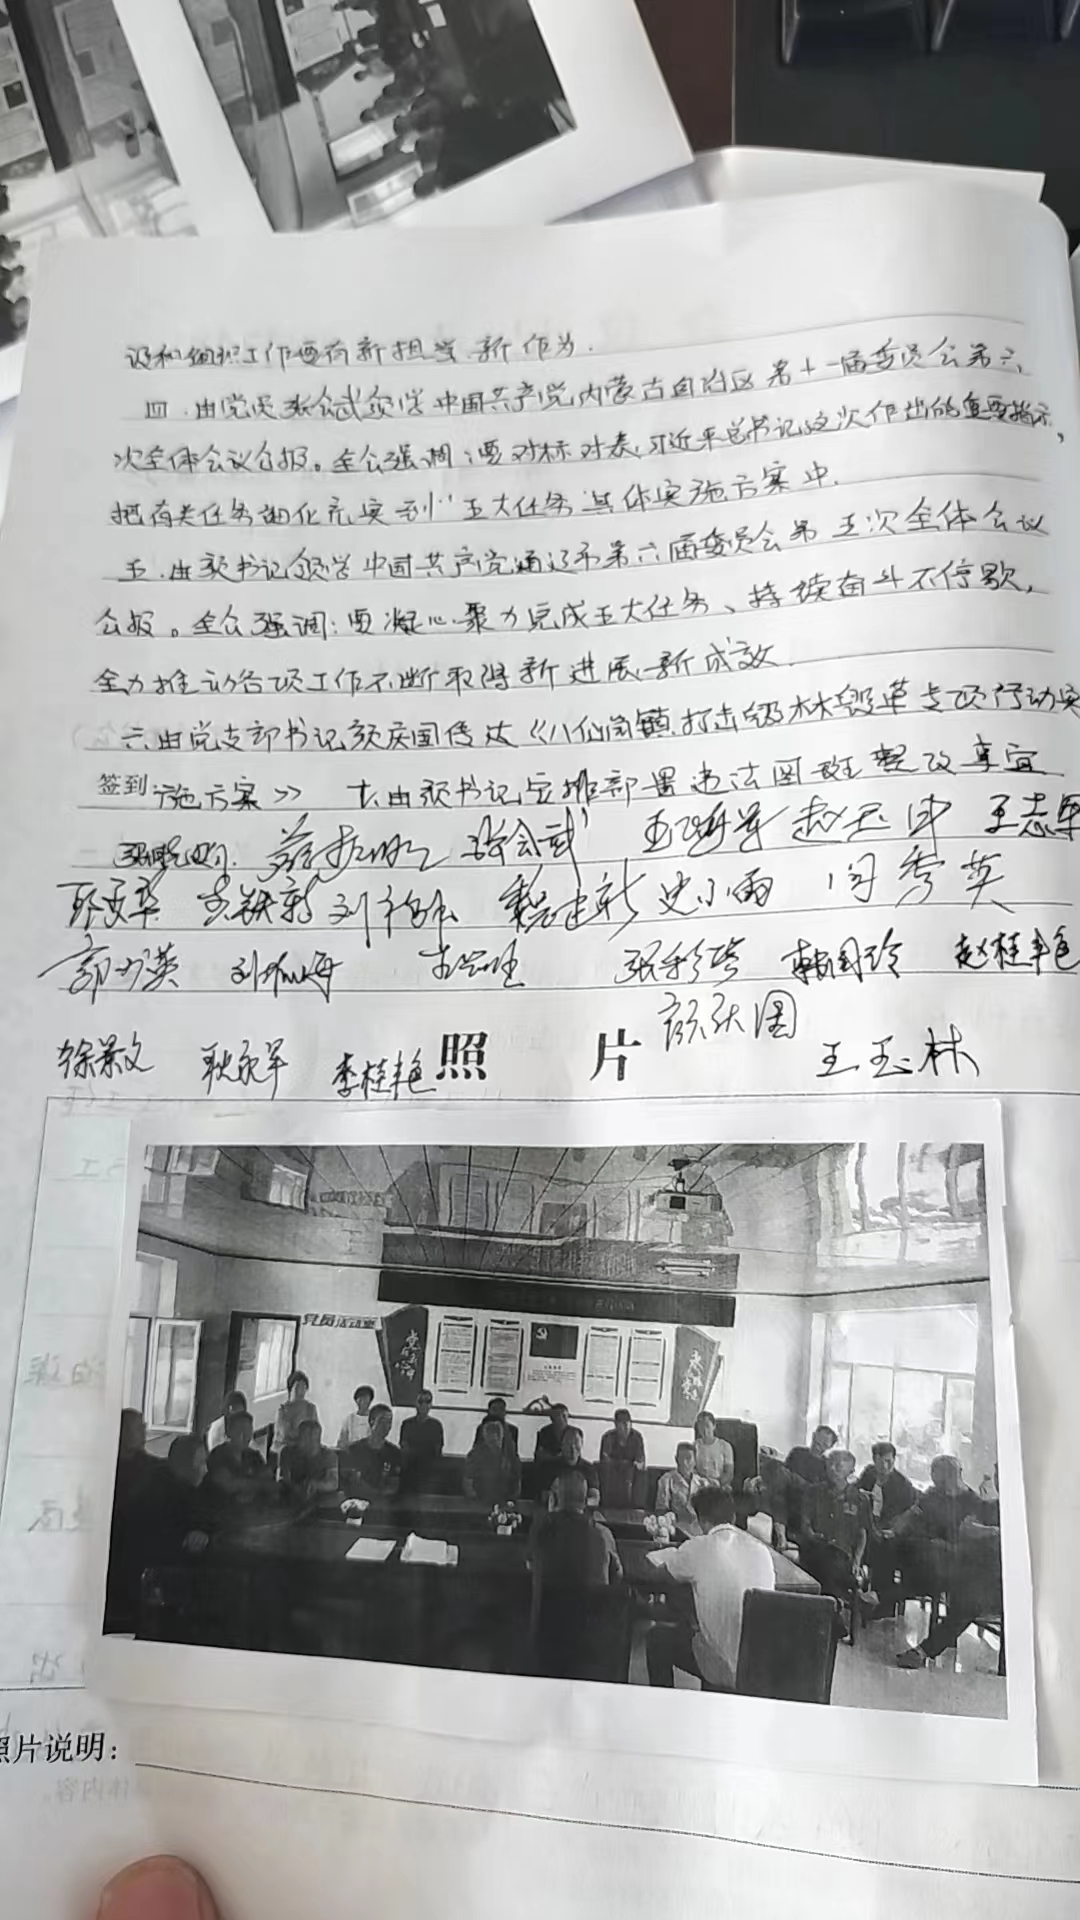 设和组织工作要有新担当、新作为.
四.由党员张会武领学中国共产党内蒙古自治区第十一届委员会第六
次全体会议公报。全会强调:要对标对表,习近平总书记这次作出的重要指示,
把有关任务细化充实到“五大任务具体实施方案中.
五.由颜书记领学中国共产党通辽市第六届委员会第五次全体会议
公报。全会强调:要凝心聚力完成五大任务、持续奋斗不停歇,
全力推动各项工作不断取得新进展、新成效.
六.由党支部书记颜庆国传达《八仙筒镇打击毁林毁草专项行动实
签到 施方案》 七.由颜书记安排部署违法图斑整改事宜
张会武 王海军 赵玉坤 王志军
魏建新 史小雨 闫秀英
韩国玲 赵桂艳
颜庆国
徐景文 耿永军 李桂艳 照 片 王玉林
党员活动室
党在心中
永跟党走
照片说明: